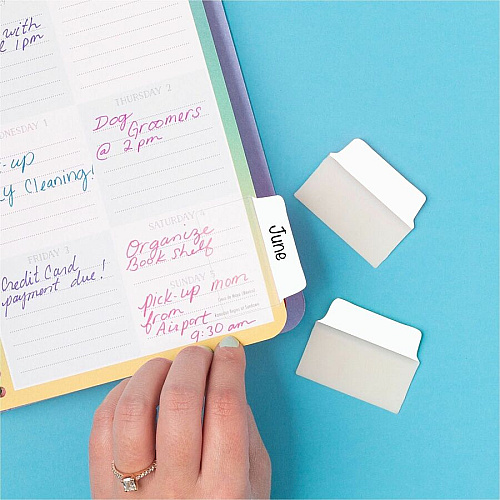 with
1pm
THURSDAY 2
Dog
Groomers
@ 2 pm
WEDNESDAY 1
-up
y Cleaning!
SATURDAY 4
Organize
Book shelf
June
FRIDAY 3
Credit Card
payment due!
SUNDAY 5
Pick-up mom
from
Airport
9:30 am